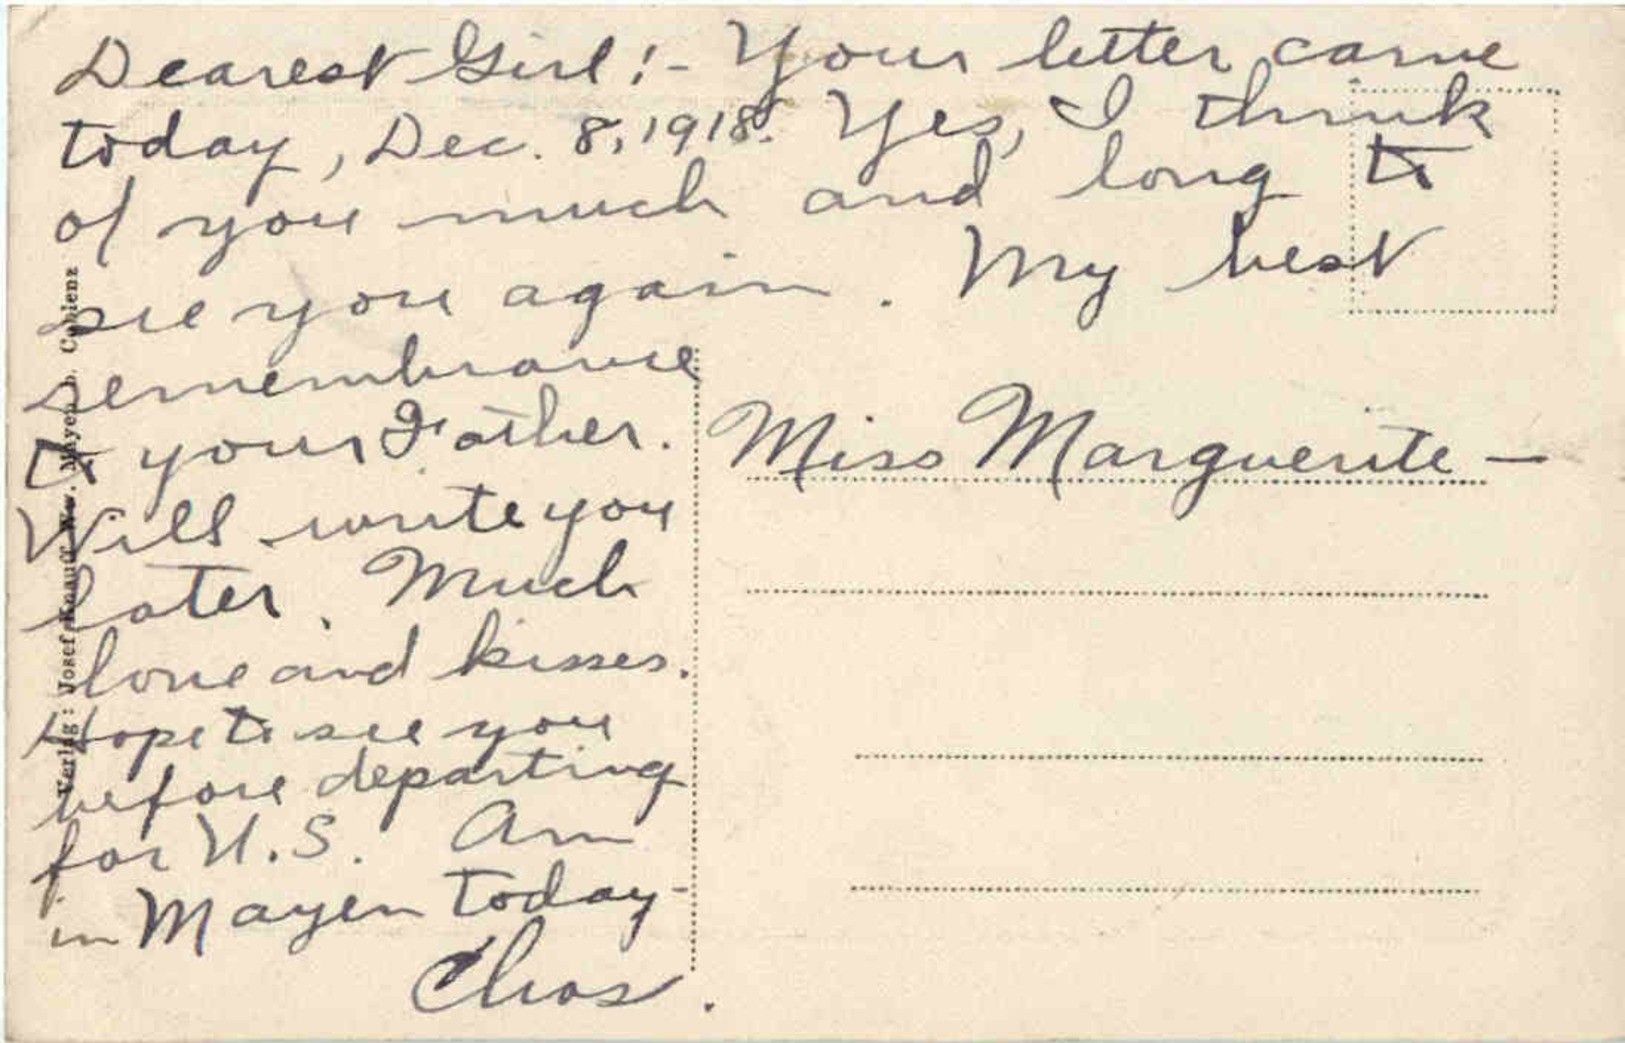 Dearest Girl! - Your letter came
today, Dec. 8, 1918. Yes, I think
of you much and long to
see you again. My best
remembrance
to your Father.
Will write you
later. Much
love and kisses.
Hope to see you
before departing
for U.S. Am
in Mayen today -
Chas.
Miss Marguerite —
Verlag: Josef Knauff Ww. Mayen b. Coblenz